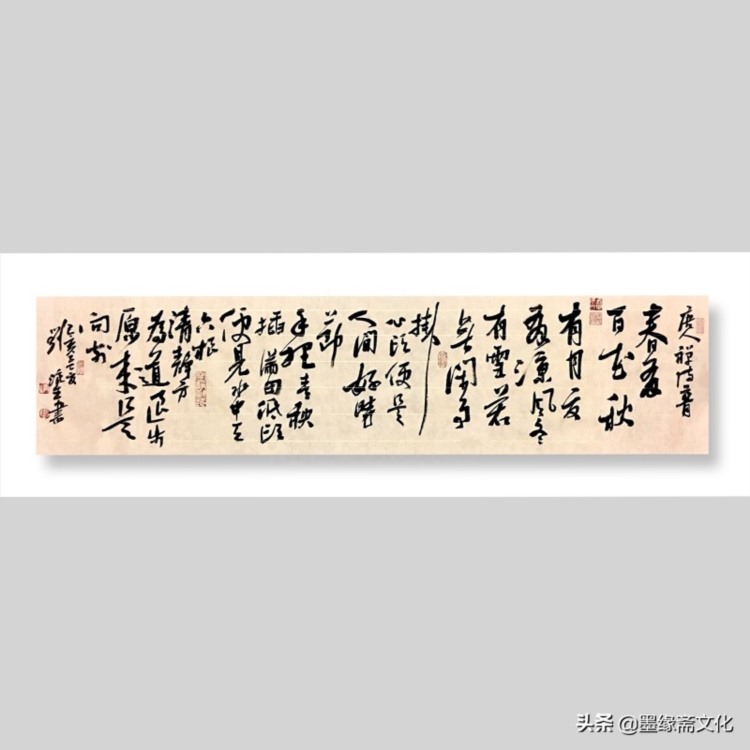 唐人禅诗二首
春有
百花秋
有月夏
有凉风冬
有雪若
無闲事
掛
心头便是
人间好時
節
手把青秧
插满田低头
便見水中天
六根
清静方
為道退步
原来是
向前
头条 @墨缘斋文化